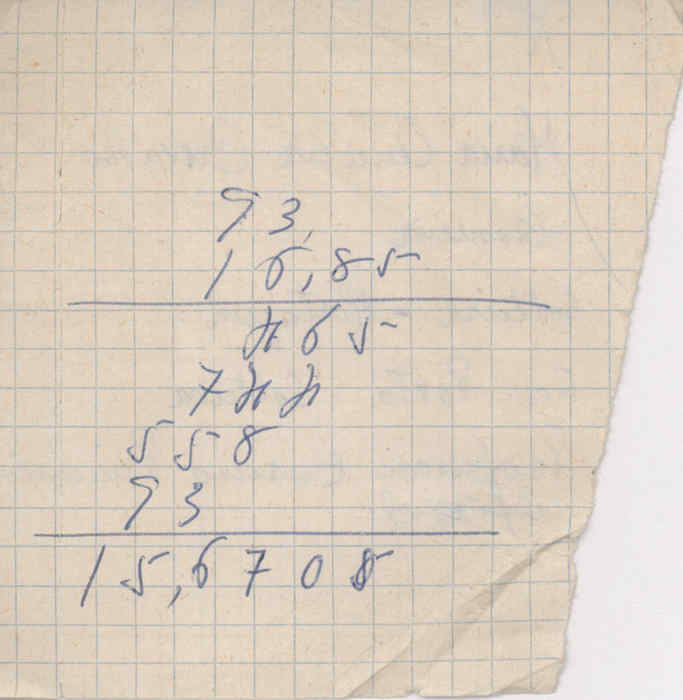 93,
16,85
465
744
558
93
15,6708